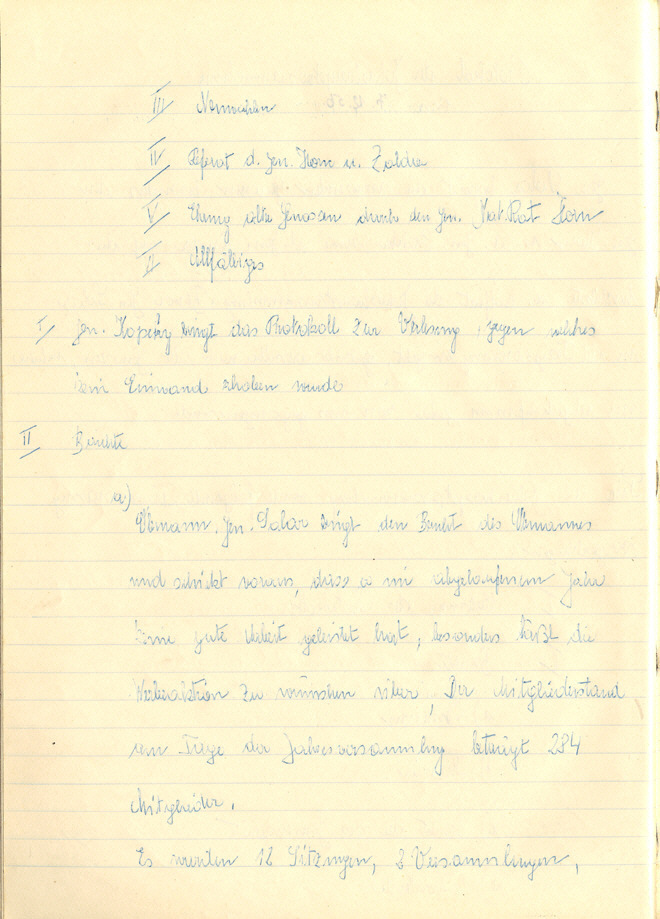 III Neuwahlen
IV Referat d. Gen. u. Zaldra
V Ehrung alter Genossen durch den Gen. Nat. Rat Horn
VI Allfälliges
I Gen. Kopetzky bringt das Protokoll zur Verlesung, gegen welches
kein Einwand erhoben wurde
II Berichte
a.)
Obmann. Gen. bringt den Bericht des Obmannes
und schickt voraus, dass er im abgelaufenem Jahr
keine gute Arbeit geleistet hat, besonders läßt die
Werbeaktion zu wünschen über, Der Mitgliederstand
am Tage der Jahresversammlung beträgt 284
Mitglieder.
Es wurden 12 Sitzungen, 3 Versammlungen,